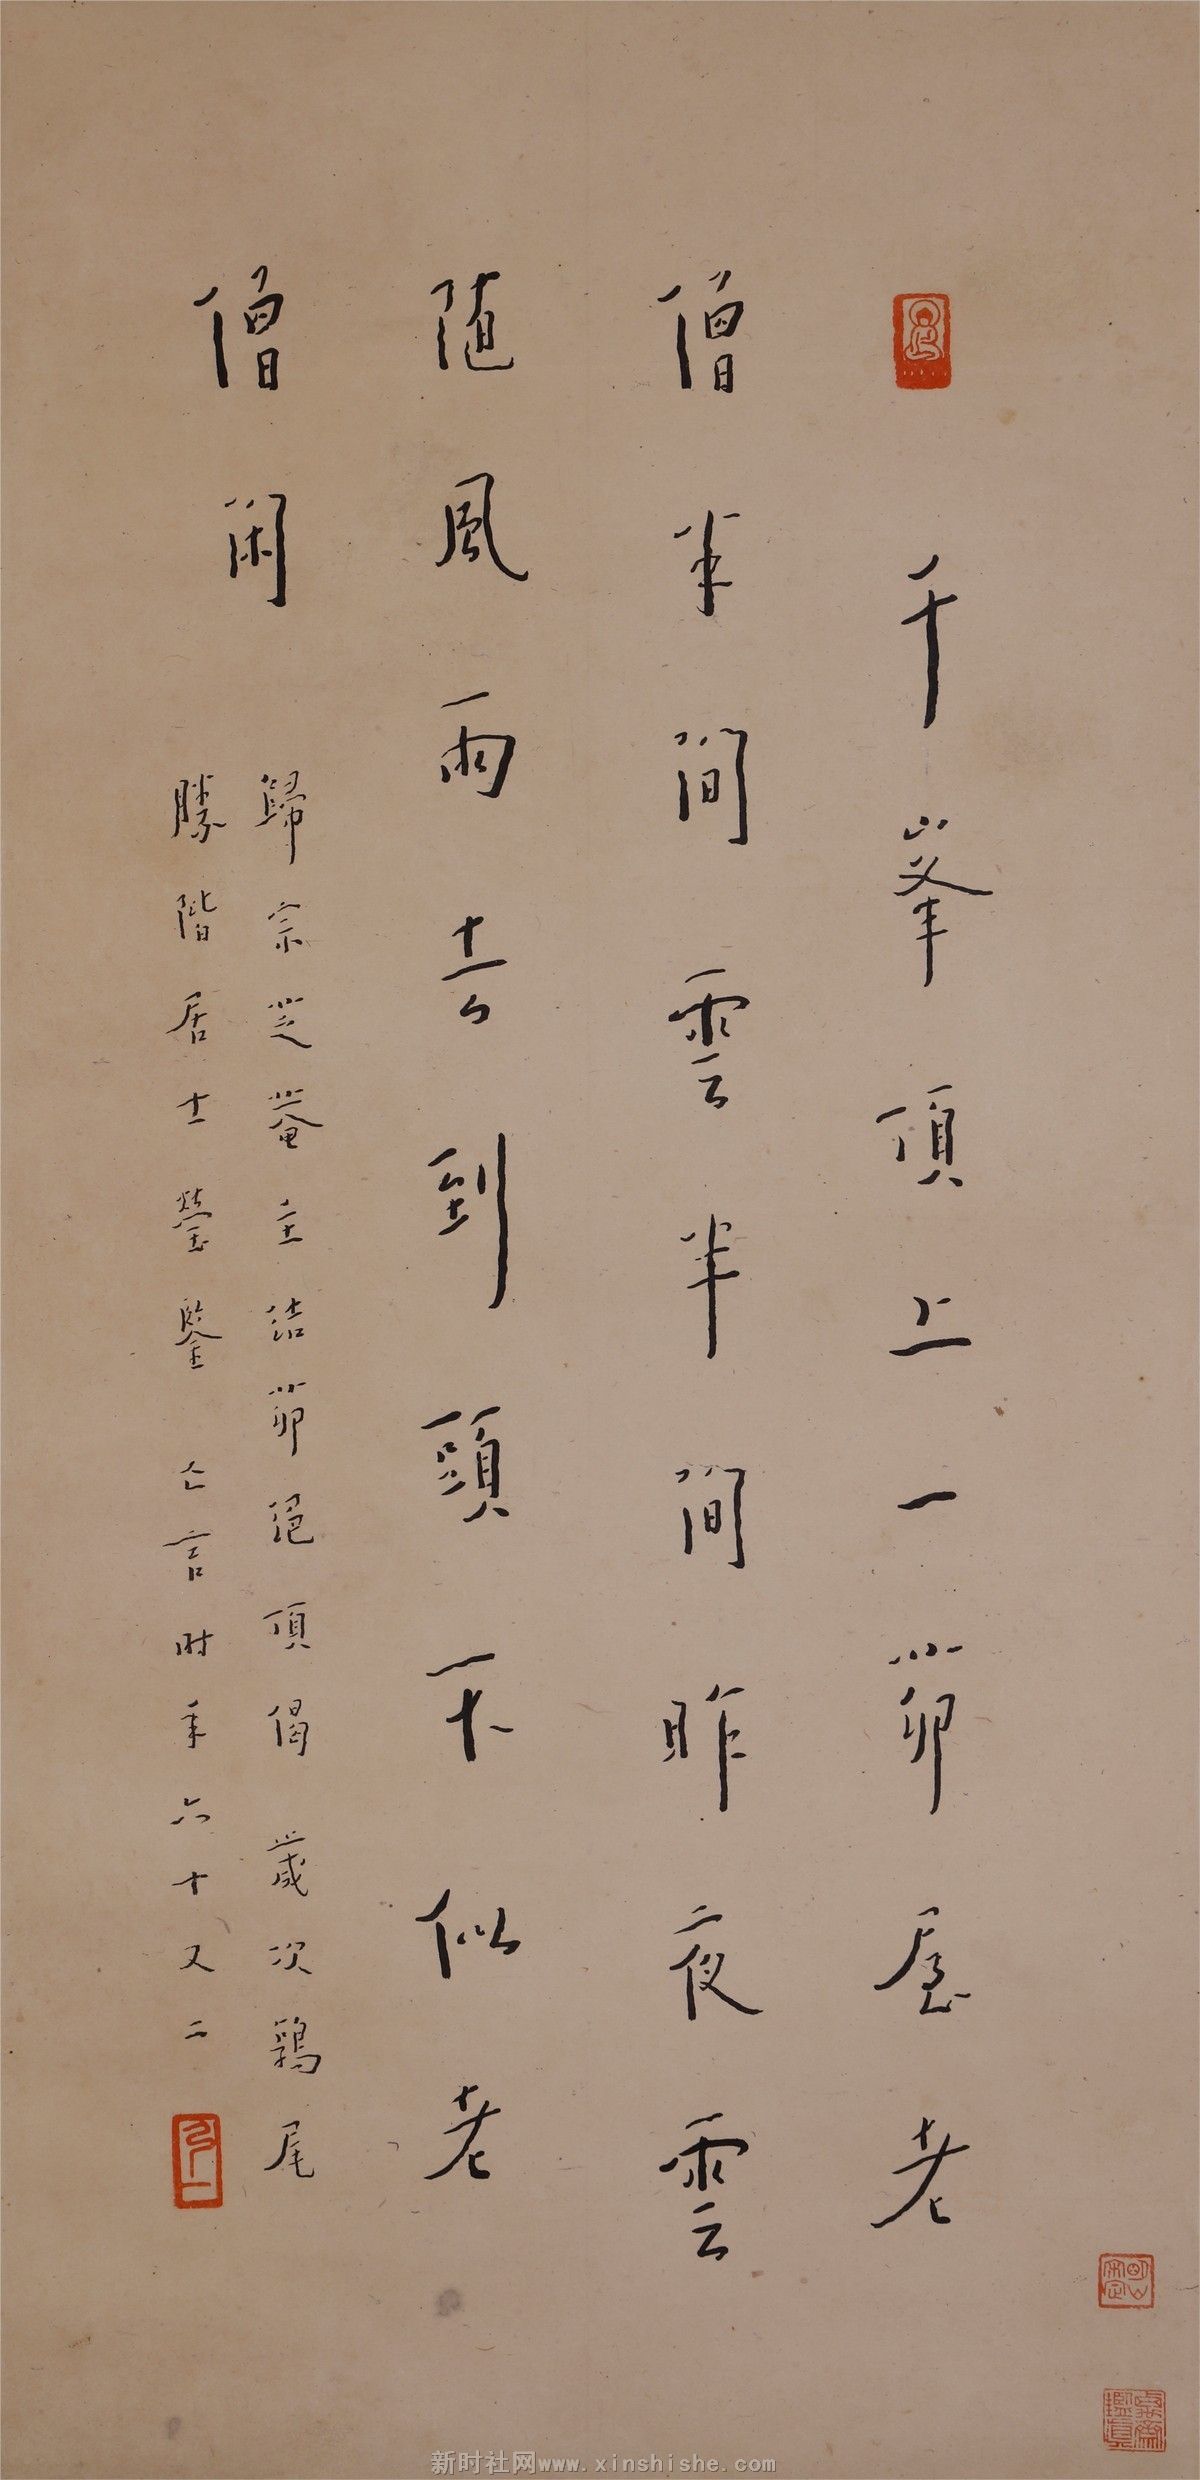 千峯頂上一茆屋老
僧半間雲半間昨夜雲
随風雨去到頭不似老
僧閑
歸宗芝菴主結茆絕頂偈 歲次鶉尾
勝階居士瑩鑒 亾言时年六十又二
新时社网www.xinshishe.com